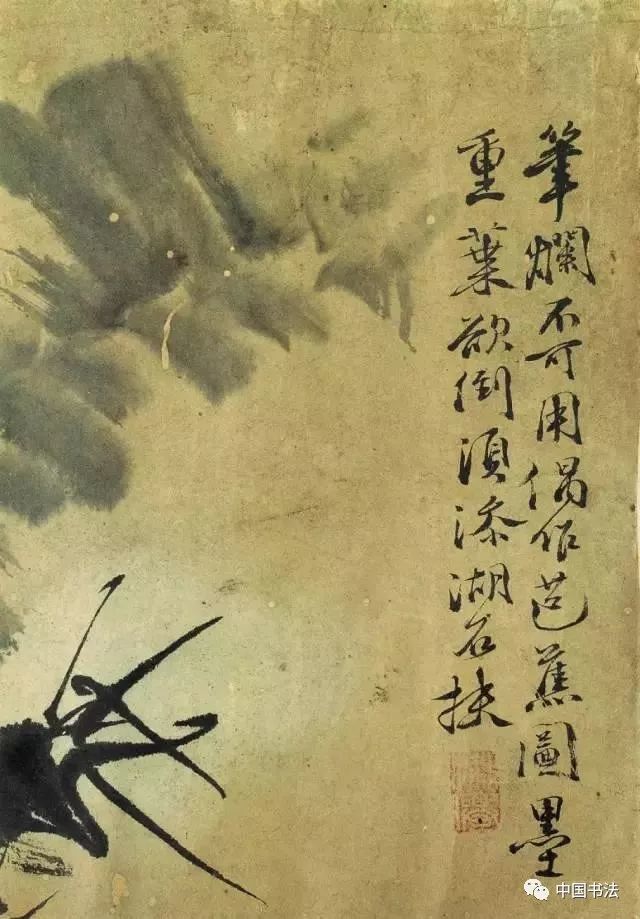 筆爛不可用偶作芭蕉圖墨
重葉欲倒須添湖石扶
中国书法